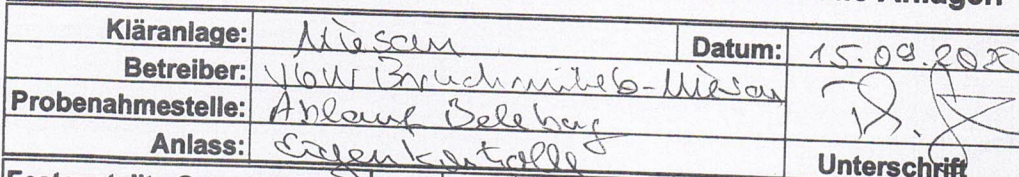 Anlagen
Kläranlage: Miesau Datum: 15.09.20
Betreiber: VGW Bruchmühlb-Miesau
Probenahmestelle: Ablauf Belebung
Anlass: Eigenkontrolle Unterschrift